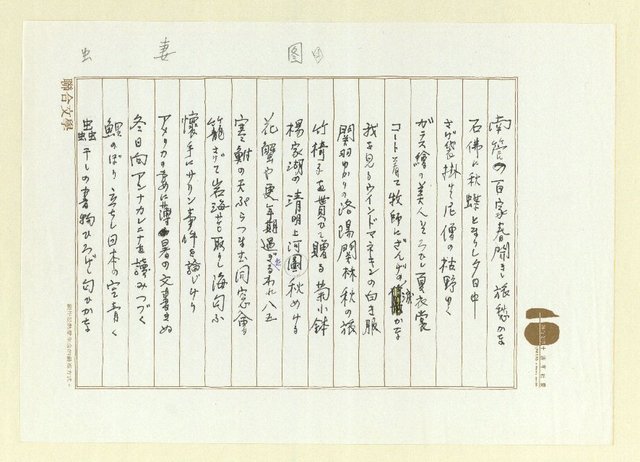 虫　妻　図
南管の百家春聞きし旅愁かな
石佛に秋蝶とまり夕日中
さげ袋掛けて尼僧の枯野ゆく
ガラス繪の美人そろひし夏衣裳
コート着て牧師にざんげ かな
我を見るウインドマネキンの白き服
関羽ゆかりの洛陽関林秋の旅
竹椅子を貰ひて贈る菊小鉢
楊家湖の清明上河圖秋めける
花蟹や更年期過ぎしわれ八五
寒鮒の天ぷらつまむ同窓會
籠さげて岩海苔取りし海匂ふ
懐手にサリン事件を論じけり
アメリカの妻に薄暑の文書きぬ
冬日向アンナカレーニナを讀みつづく
鯉のぼり立ちし日本の空青く
蟲干しの書物ひろげし匂ひかな
聯合文學